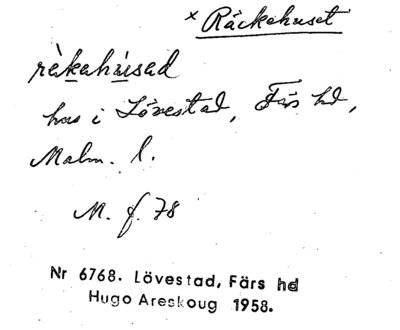 × Räckehuset
rèkahùsad
hus i Lövestad, Färs hd,
Malm. l.
M. f. 78
Nr 6768. Lövestad, Färs hd
Hugo Areskoug 1958.